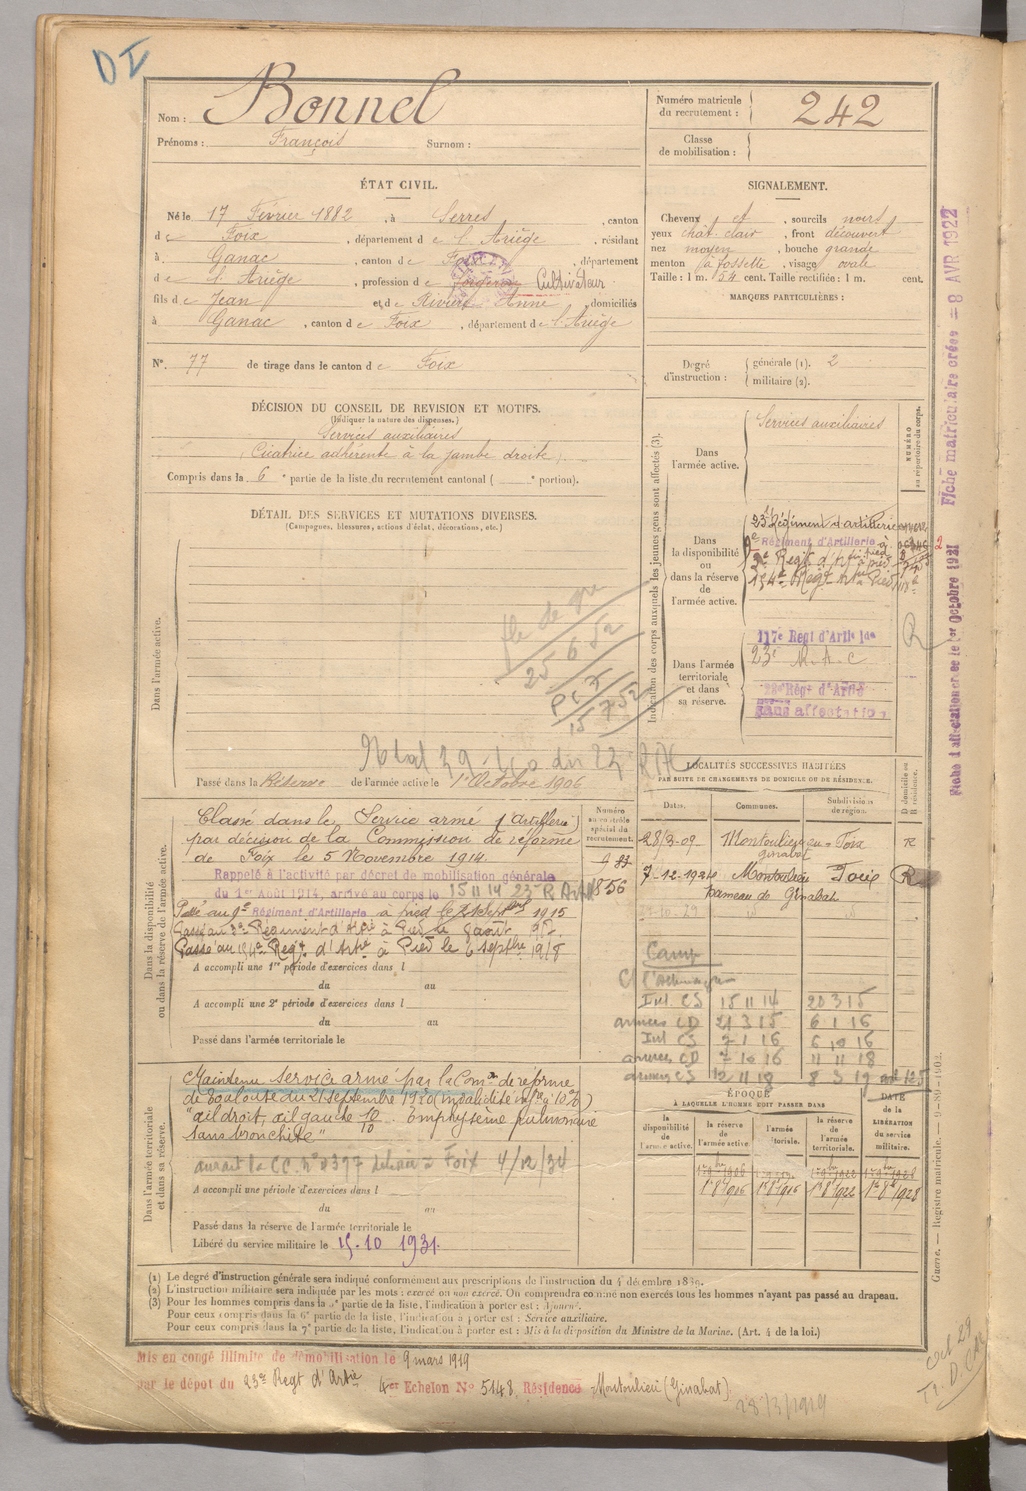 D I
Nom : Bonnel
Prénoms : François Surnom :
Numéro matricule du recrutement : 242
Classe de mobilisation :
ÉTAT CIVIL.
Né le 17 Février 1882, à Serres, canton
de Foix, département de l'Ariège, résidant
à Ganac, canton de Foix, département
de l'Ariège, profession de Cultivateur
fils de Jean et de Rivière Anne, domiciliés
à Ganac, canton de Foix, département de l'Ariège
N° 77 de tirage dans le canton de Foix
SIGNALEMENT.
Cheveux et, sourcils noirs
yeux chât. clair, front découvert
nez moyen, bouche grande
menton à fossette, visage ovale
Taille : 1 m. 54 cent. Taille rectifiée : 1 m. cent.
MARQUES PARTICULIÈRES :
Degré d'instruction : générale (1). 2
militaire (2).
DÉCISION DU CONSEIL DE REVISION ET MOTIFS.
(Indiquer la nature des dispenses.)
Services auxiliaires
(Cicatrice adhérente à la jambe droite).
Compris dans la 6e partie de la liste du recrutement cantonal ( e portion).
DÉTAIL DES SERVICES ET MUTATIONS DIVERSES.
(Campagnes, blessures, actions d'éclat, décorations, etc.)
Dans l'armée active.
25 6 52
15 7 52
Passé dans la Réserve de l'armée active le 1er Octobre 1906
Indication des corps auxquels les jeunes gens sont affectés (3).
NUMÉRO au répertoire du corps.
Dans l'armée active.
Services auxiliaires
Dans la disponibilité ou dans la réserve de l'armée active.
23e Régiment d'artillerie
9e Régiment d'Artillerie à pied
3e Régt d'Artie à pied
154e Régt Artie à Pied
Dans l'armée territoriale et dans sa réserve.
117e Régt d'Artie lde
23e R.A.C
28e Régt d'Artie
sans affectation
Fiche matriculaire créée = 8 AVR 1922
Fiche d'affectation créée le 1er Octobre 1921
LOCALITÉS SUCCESSIVES HABITÉES
PAR SUITE DE CHANGEMENTS DE DOMICILE OU DE RÉSIDENCE.
Dates. Communes. Subdivisions de région. D domicile ou R résidence.
28/3-09 Montoulieu ginabat Foix R
7-12-1924 Montoulieu hameau de Ginabat Foix R
Dans la disponibilité ou dans la réserve de l'armée active.
Numéro au contrôle spécial du recrutement.
Classé dans le Service armé (Artillerie)
par décision de la Commission de réforme
de Foix le 5 Novembre 1914.
Rappelé à l'activité par décret de mobilisation générale
du 1er Août 1914, arrivé au corps le 15 11 14 23e R Art
1856
Passé au 9e Régiment d'Artillerie à pied le 1915
Passé au 3e Régiment d'Artie à Pied le 9 août 1917.
Passé au 154e Régt d'Artie à Pied le 6 septbre 1918
A accompli une 1re période d'exercices dans l
du au
A accompli une 2e période d'exercices dans l
du au
Passé dans l'armée territoriale le
Camp
C/ l'Allemagne
Int. CS 15 11 14 20 3 15
armées CD 21 3 15 6 1 16
Int CS 7 1 16 6 10 16
armées CD 7 10 16 11 11 18
armées CS 12 11 18 8 3 19
ÉPOQUE
À LAQUELLE L'HOMME DOIT PASSER DANS
la disponibilité de l'armée active.
la réserve de l'armée active.
l'armée territoriale.
la réserve de l'armée territoriale.
DATE de la LIBÉRATION du service militaire.
1r 8e 1906 1r 8e 1916 1r 8e 1922 1r 8e 1928
Dans l'armée territoriale et dans sa réserve.
Maintenu service armé par la Comon de réforme
de Toulouse du 21 septembre 1920 (invalidité infre à 10%)
"œil droit, œil gauche 10/10. Emphysème pulmonaire
sans bronchite"
4/12/34
A accompli une période d'exercices dans l
du au
Passé dans la réserve de l'armée territoriale le
Libéré du service militaire le 15-10 1931.
(1) Le degré d'instruction générale sera indiqué conformément aux prescriptions de l'instruction du 4 décembre 1889.
(2) L'instruction militaire sera indiquée par les mots : exercé ou non exercé. On comprendra comme non exercés tous les hommes n'ayant pas passé au drapeau.
(3) Pour les hommes compris dans la 5e partie de la liste, l'indication à porter est : Ajourné.
Pour ceux compris dans la 6e partie de la liste, l'indication à porter est : Service auxiliaire.
Pour ceux compris dans la 7e partie de la liste, l'indication à porter est : Mis à la disposition du Ministre de la Marine. (Art. 4 de la loi.)
Guerre. — Registre matricule.
Mis en congé illimité de démobilisation le 9 mars 1919
par le dépôt du 23e Régt d'Artie 4er Echelon N° 5148, Résidence Montoulieu (Ginabat)
28/3/1919